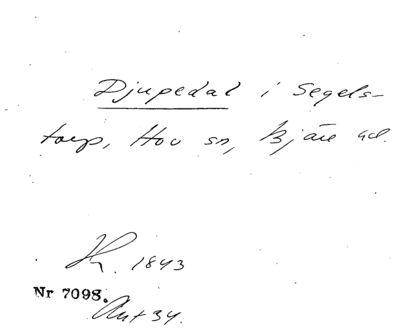 Djupedal i Segels-
torp, Hov sn, Bjäre hd.
Kr. 1843
Nr 7098.
Ant 34.